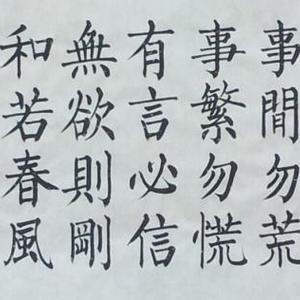 事間勿荒
事繁勿慌
有言必信
無欲則剛
和若春風